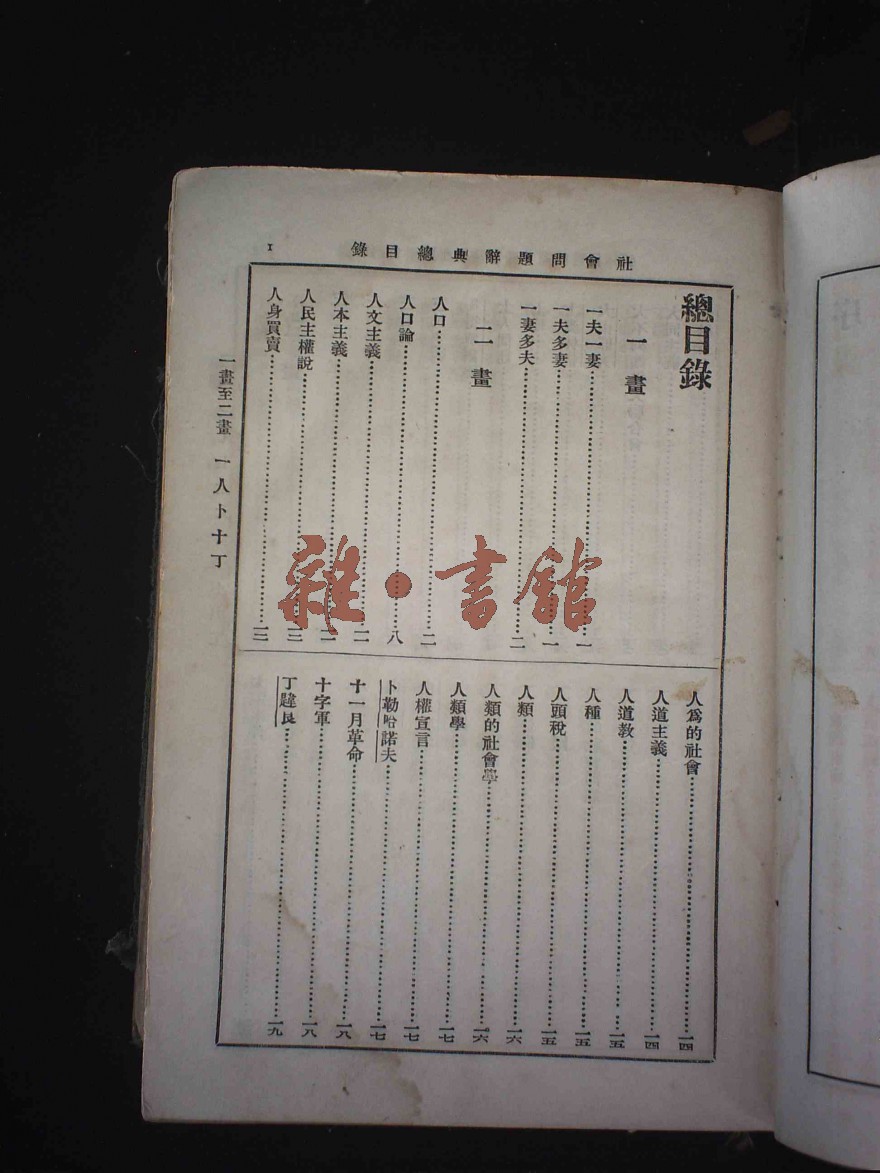 社會問題辭典總目錄 1
總目錄
一畫
一夫一妻……一
一夫多妻……一
一妻多夫……二
二畫
人口……二
人口論……八
人文主義……一一
人本主義……一二
人民主權說……一三
人身買賣……一三
人爲的社會……一四
人道主義……一四
人道教……一五
人種……一五
人頭稅……一五
人類……一六
人類的社會學……一六
人類學……一七
人權宣言……一七
卜勒哈諾夫……一七
十一月革命……一八
十字軍……一八
丁韙良……一九
一畫至二畫 一人卜十丁
雜·書館